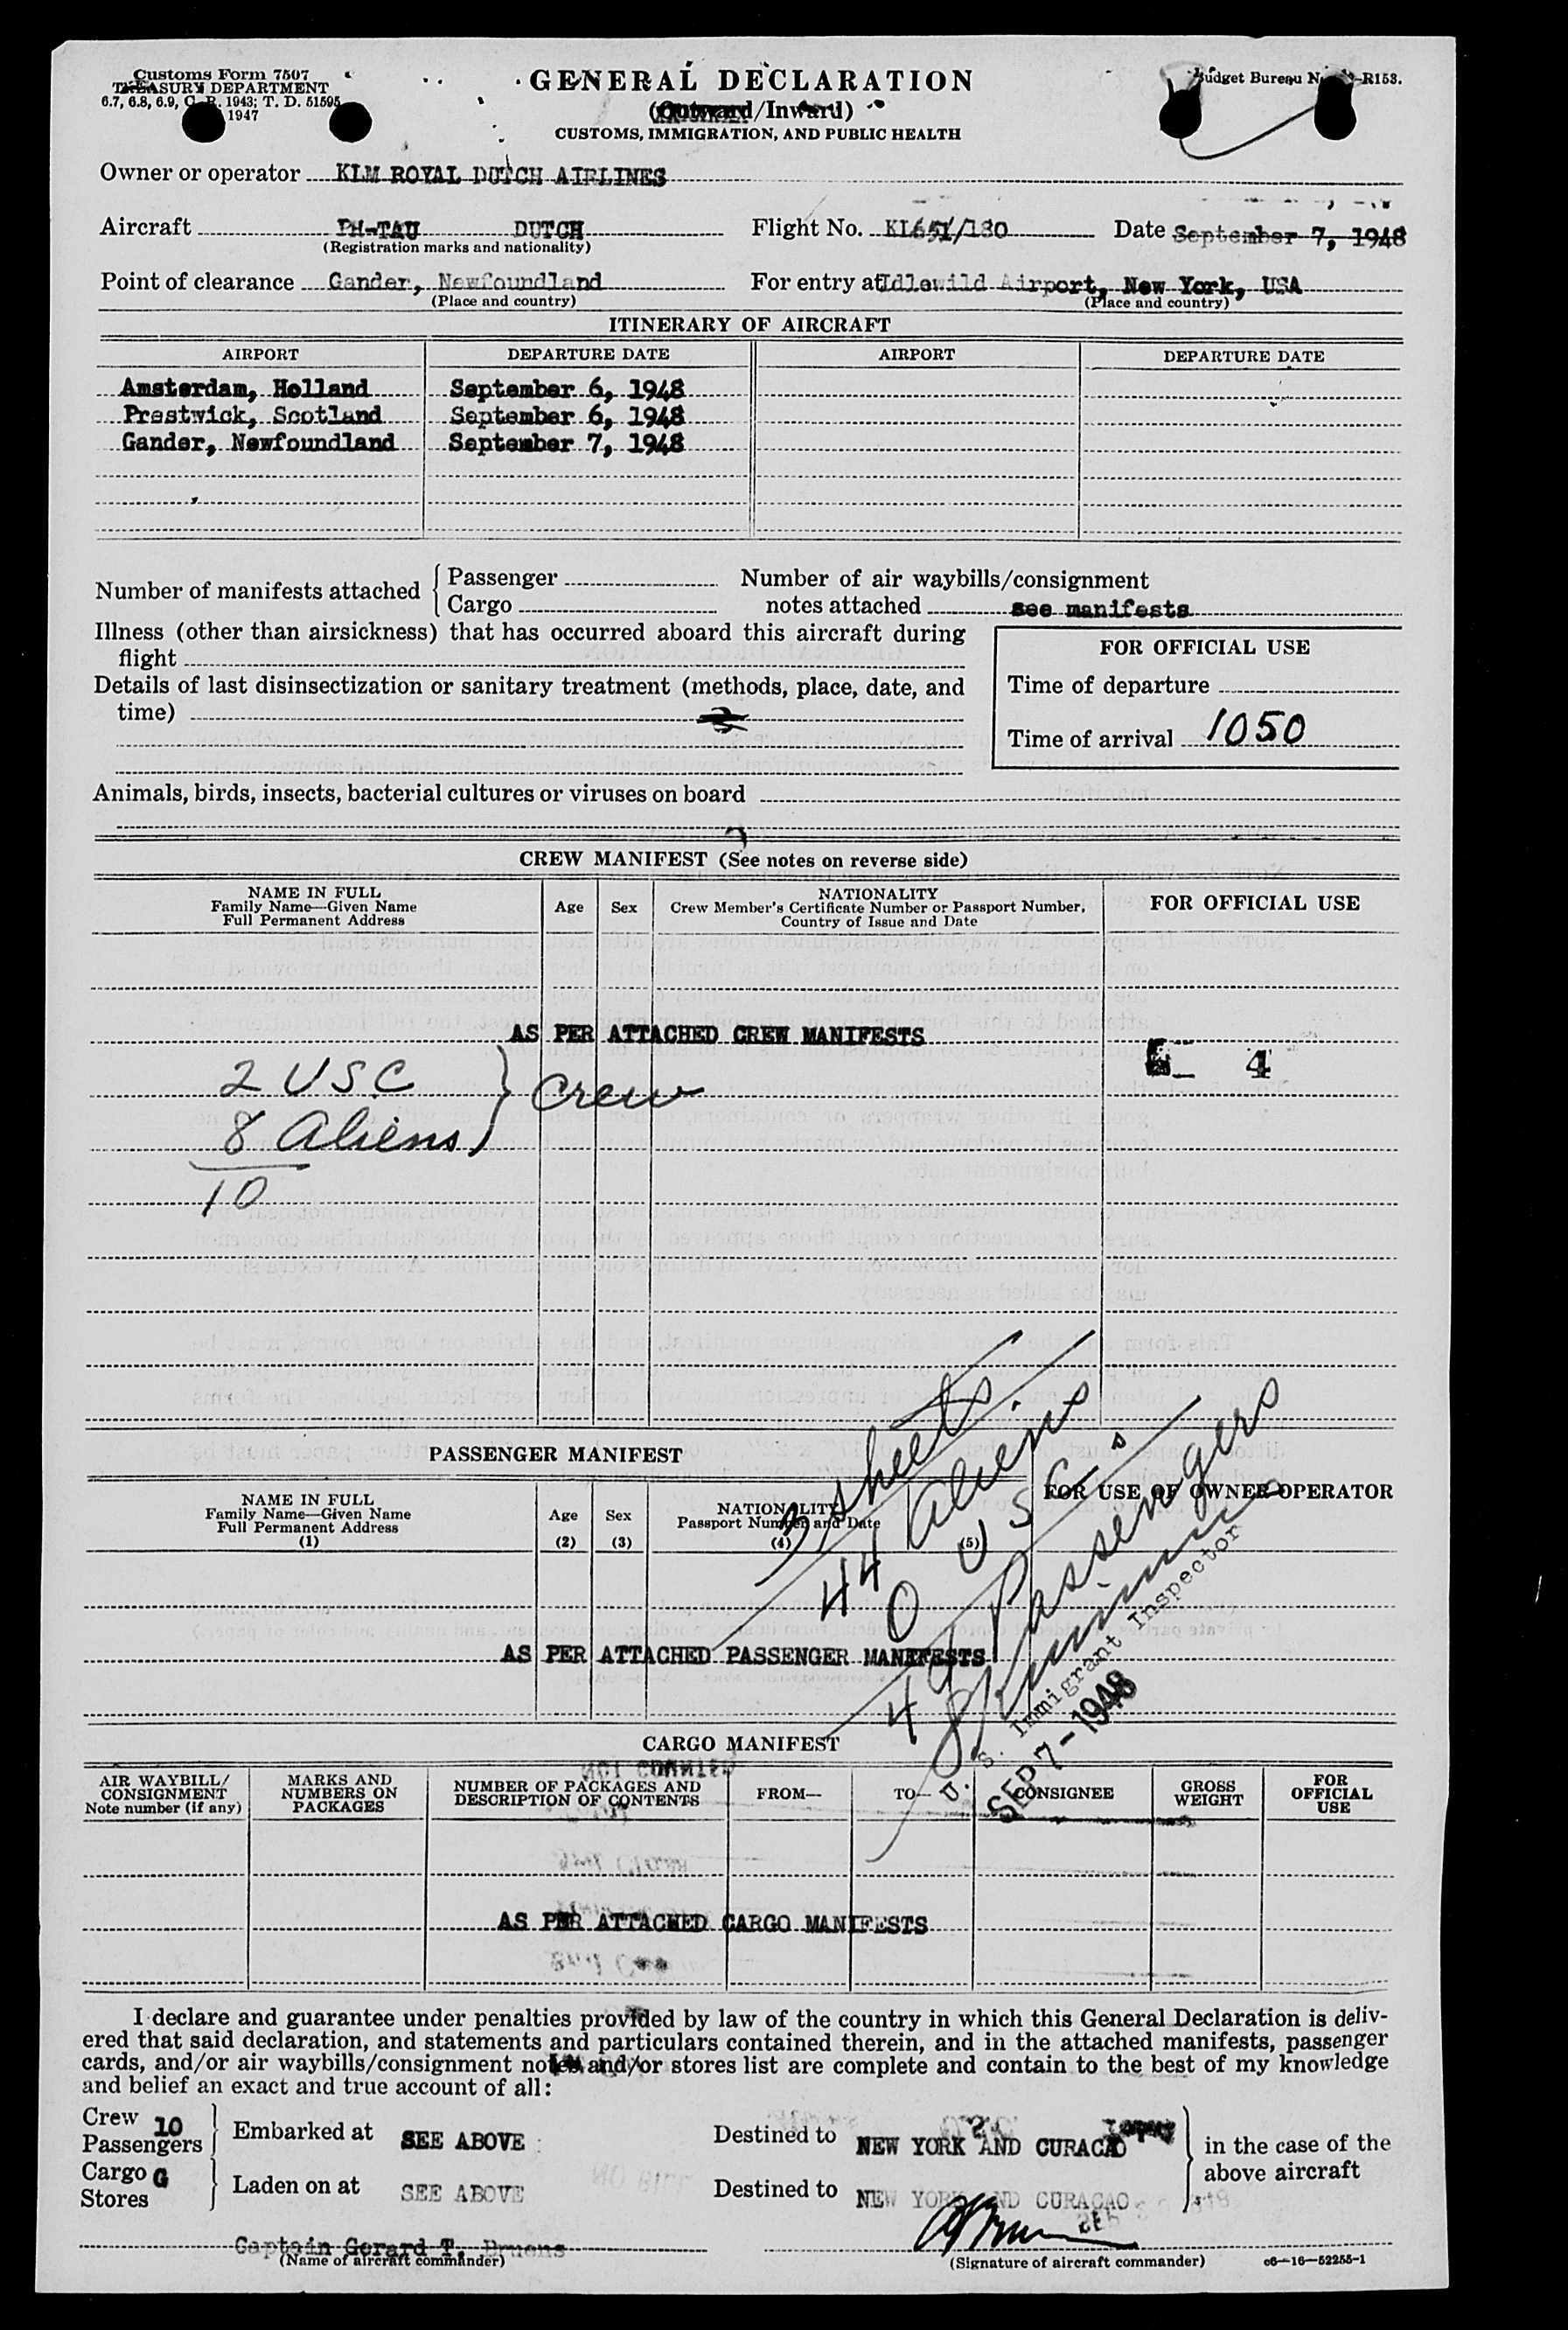 Customs Form 7507
TREASURY DEPARTMENT
6.7, 6.8, 6.9, C. R. 1943; T. D. 51595
1947
GENERAL DECLARATION
(Outward/Inward)
CUSTOMS, IMMIGRATION, AND PUBLIC HEALTH
Budget Bureau -R153.
Owner or operator KLM ROYAL DUTCH AIRLINES
Aircraft PH-TAU DUTCH Flight No. KL651/130 Date September 7, 1948
(Registration marks and nationality)
Point of clearance Gander, Newfoundland For entry at Idlewild Airport, New York, USA
(Place and country) (Place and country)
ITINERARY OF AIRCRAFT
AIRPORT DEPARTURE DATE AIRPORT DEPARTURE DATE
Amsterdam, Holland September 6, 1948
Prestwick, Scotland September 6, 1948
Gander, Newfoundland September 7, 1948
Number of manifests attached { Passenger
Cargo
Number of air waybills/consignment
notes attached see manifests
Illness (other than airsickness) that has occurred aboard this aircraft during
flight
Details of last disinsectization or sanitary treatment (methods, place, date, and
time)
FOR OFFICIAL USE
Time of departure
Time of arrival 1050
Animals, birds, insects, bacterial cultures or viruses on board
CREW MANIFEST (See notes on reverse side)
NAME IN FULL
Family Name—Given Name
Full Permanent Address
Age
Sex
NATIONALITY
Crew Member's Certificate Number or Passport Number,
Country of Issue and Date
FOR OFFICIAL USE
AS PER ATTACHED CREW MANIFESTS
4
2 USC
8 Aliens } Crew
10
3 sheets
44 Aliens
0 USC s
44 Passengers
U. S. Immigrant Inspector
SEP 7 - 1948
PASSENGER MANIFEST
NAME IN FULL
Family Name—Given Name
Full Permanent Address
(1)
Age
(2)
Sex
(3)
NATIONALITY
Passport Number and Date
(4)
(5)
FOR USE OF OWNER OPERATOR
AS PER ATTACHED PASSENGER MANIFESTS
CARGO MANIFEST
AIR WAYBILL/
CONSIGNMENT
Note number (if any)
MARKS AND
NUMBERS ON
PACKAGES
NUMBER OF PACKAGES AND
DESCRIPTION OF CONTENTS
FROM—
TO—
CONSIGNEE
GROSS
WEIGHT
FOR
OFFICIAL
USE
AS PER ATTACHED CARGO MANIFESTS
I declare and guarantee under penalties provided by law of the country in which this General Declaration is deliv-
ered that said declaration, and statements and particulars contained therein, and in the attached manifests, passenger
cards, and/or air waybills/consignment notes and/or stores list are complete and contain to the best of my knowledge
and belief an exact and true account of all:
Crew 10
Passengers } Embarked at SEE ABOVE Destined to NEW YORK AND CURACAO
Cargo G
Stores } Laden on at SEE ABOVE Destined to NEW YORK AND CURACAO
in the case of the
above aircraft
Captain Gerard T. Bruens
(Name of aircraft commander) (Signature of aircraft commander) c6—16—52255-1